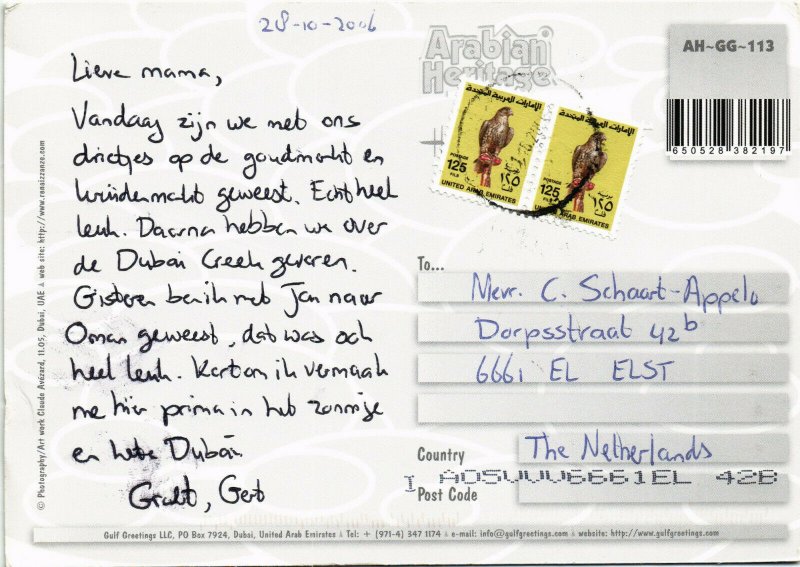 28-10-2006
Lieve mama,
Vandaag zijn we met ons
drietjes op de goudmarkt en
kruidenmarkt geweest. Echt heel
leuk. Daarna hebben we over
de Dubai Creek gevaren.
Gisteren ben ik met Jan naar
Oman geweest, dat was ook
heel leuk. Kortom ik vermaak
me hier prima in het zonnige
en hete Dubai
Gert
© Photography/Art work Claude Avézard, 11.05, Dubai, UAE ▲ web site: http://www.renaizzanze.com
Arabian
Heritage
AH~GG~113
650528 382197
الإمارات العربية المتحدة
POSTAGE
125
FILS
١٢٥
UNITED ARAB EMIRATES
الإمارات العربية المتحدة
POSTAGE
125
FILS
١٢٥
UNITED ARAB EMIRATES
To...
Mevr. C. Schaart-Appelo
Dorpsstraat 42b
6661 EL ELST
Country
The Netherlands
Post Code
I AOSVVV6661EL 42B
Gulf Greetings LLC, PO Box 7924, Dubai, United Arab Emirates ▲ Tel: + (971-4) 347 1174 ▲ e-mail: info@gulfgreetings.com ▲ website: http://www.gulfgreetings.com